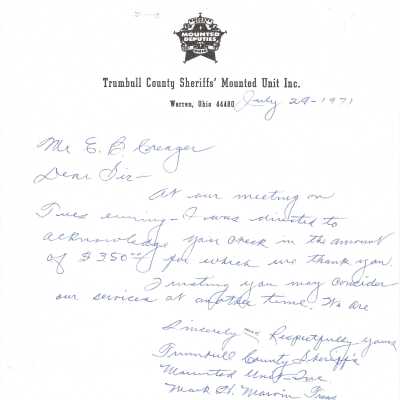 MOUNTED
DEPUTIES
Trumbull County Sheriffs' Mounted Unit Inc.
Warren, Ohio 44480
July 29-1971
Mr E. B. Creager
Dear Sir-
At our meeting on
Tues evening - I was directed to
acknowledge your check in the amount
of $350.00 for which we thank you
Trusting you may consider
our services at another time. We are
Sincerely and Respectfully yours
Trumbull County Sheriff's
Mounted Unit-Inc
Mark H. Marvin Treas